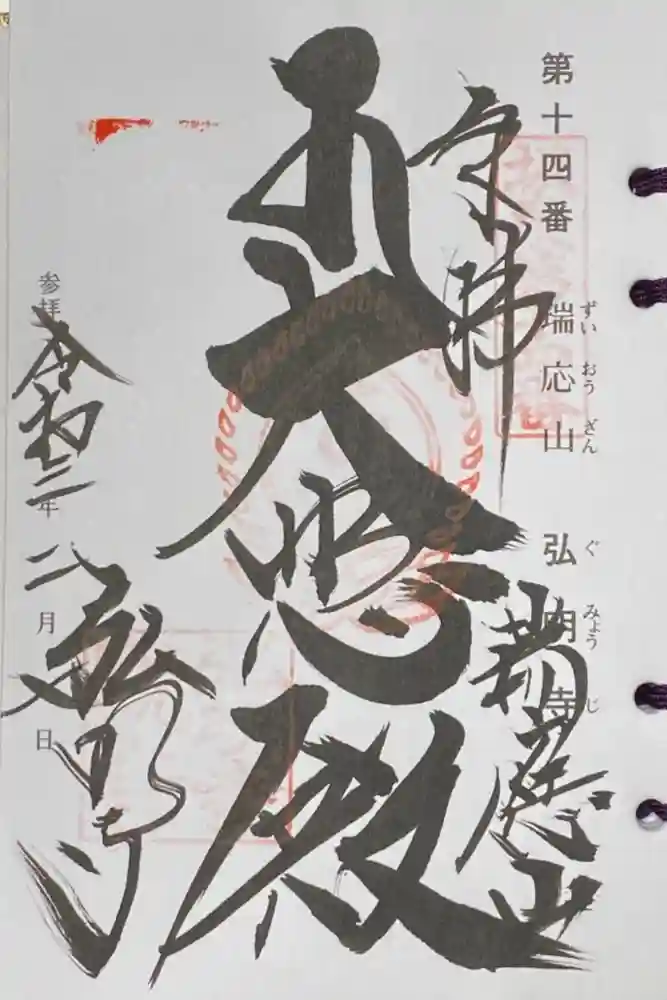 第十四番 瑞応山 弘明寺
ずいおうざん ぐみょうじ
奉拝 瑞應山
大悲殿
参拝 令和三年二月 日
弘明寺